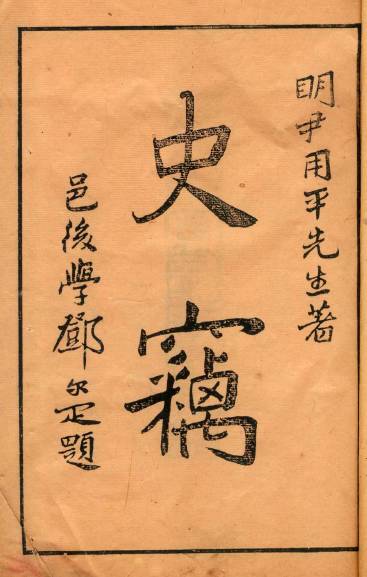 明尹用平先生著
史竊
邑後學鄧尔疋題